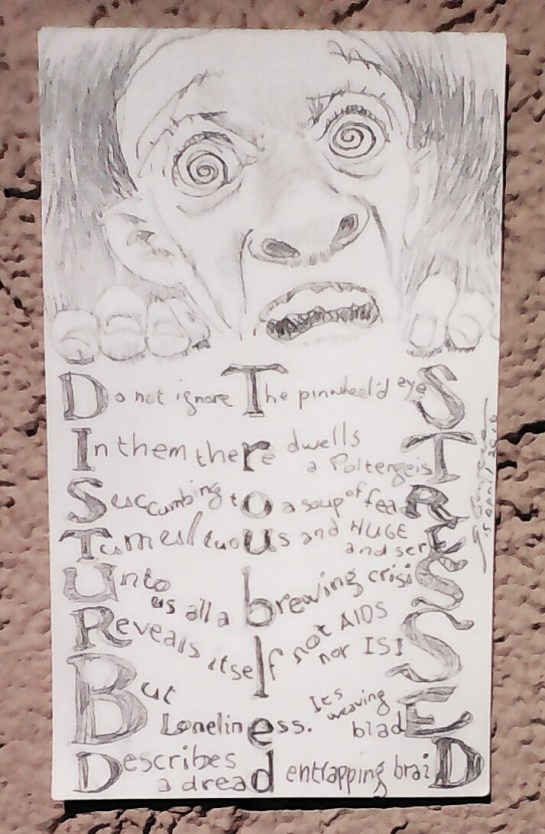 Do not ignore The pinwheel'd eyeS
In them there dwells
a PoltergeisT
Succumbing to a soup of feaR
Tumultuous and HUGE
and serE
Unto us all a brewing crisiS
Reveals itself not AIDS
nor ISIS
But Loneliness. Its weaving bladE
Describes a dread entrapping braiD